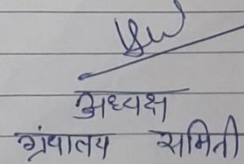 अध्यक्ष
ग्रंथालय समिती